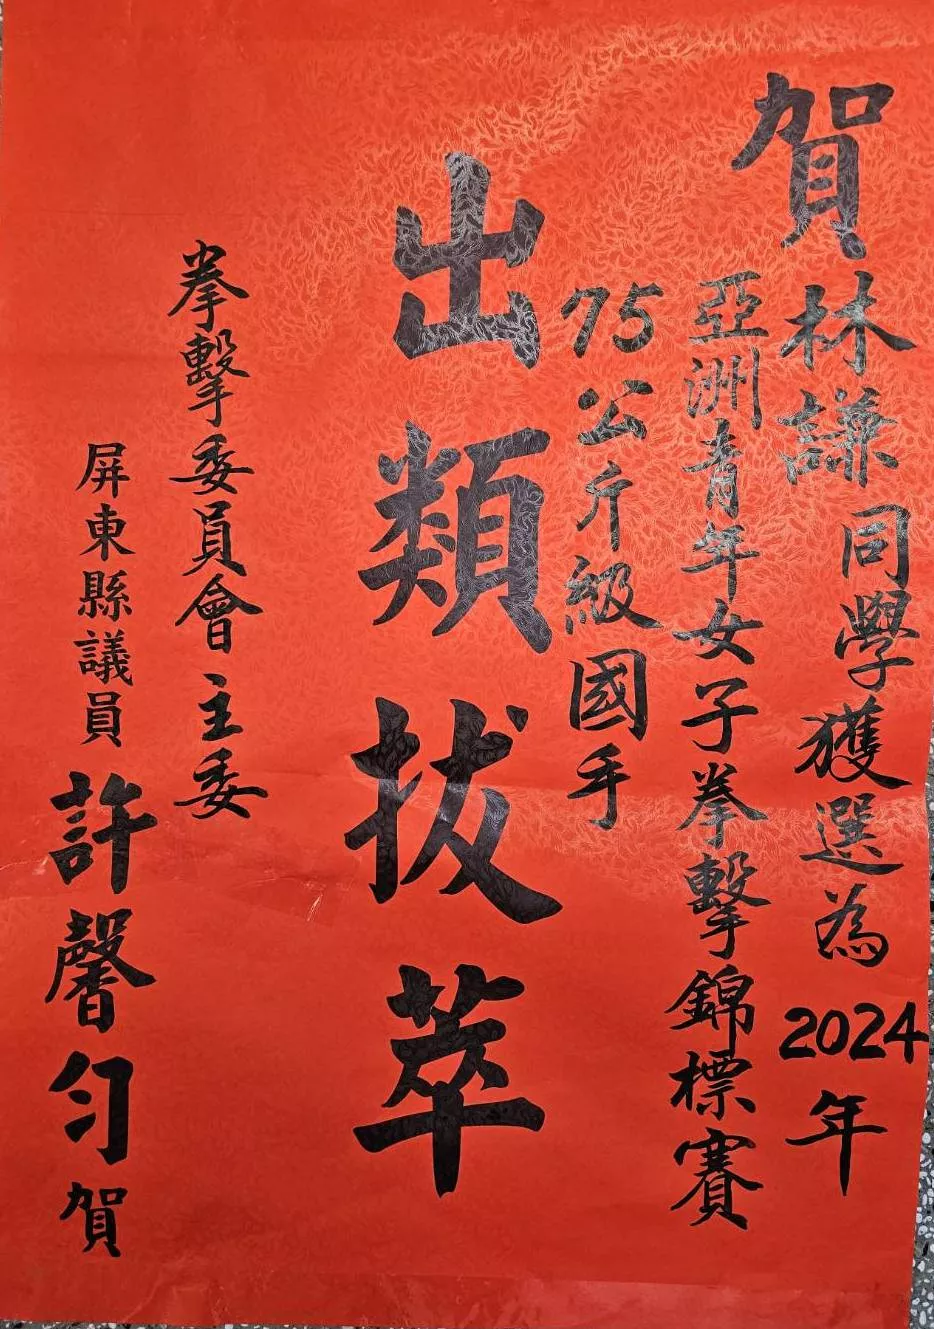 賀林謙同學獲選為2024年
亞洲青年女子拳擊錦標賽
75公斤級國手
出類拔萃
拳擊委員會主委
屏東縣議員許馨勻賀